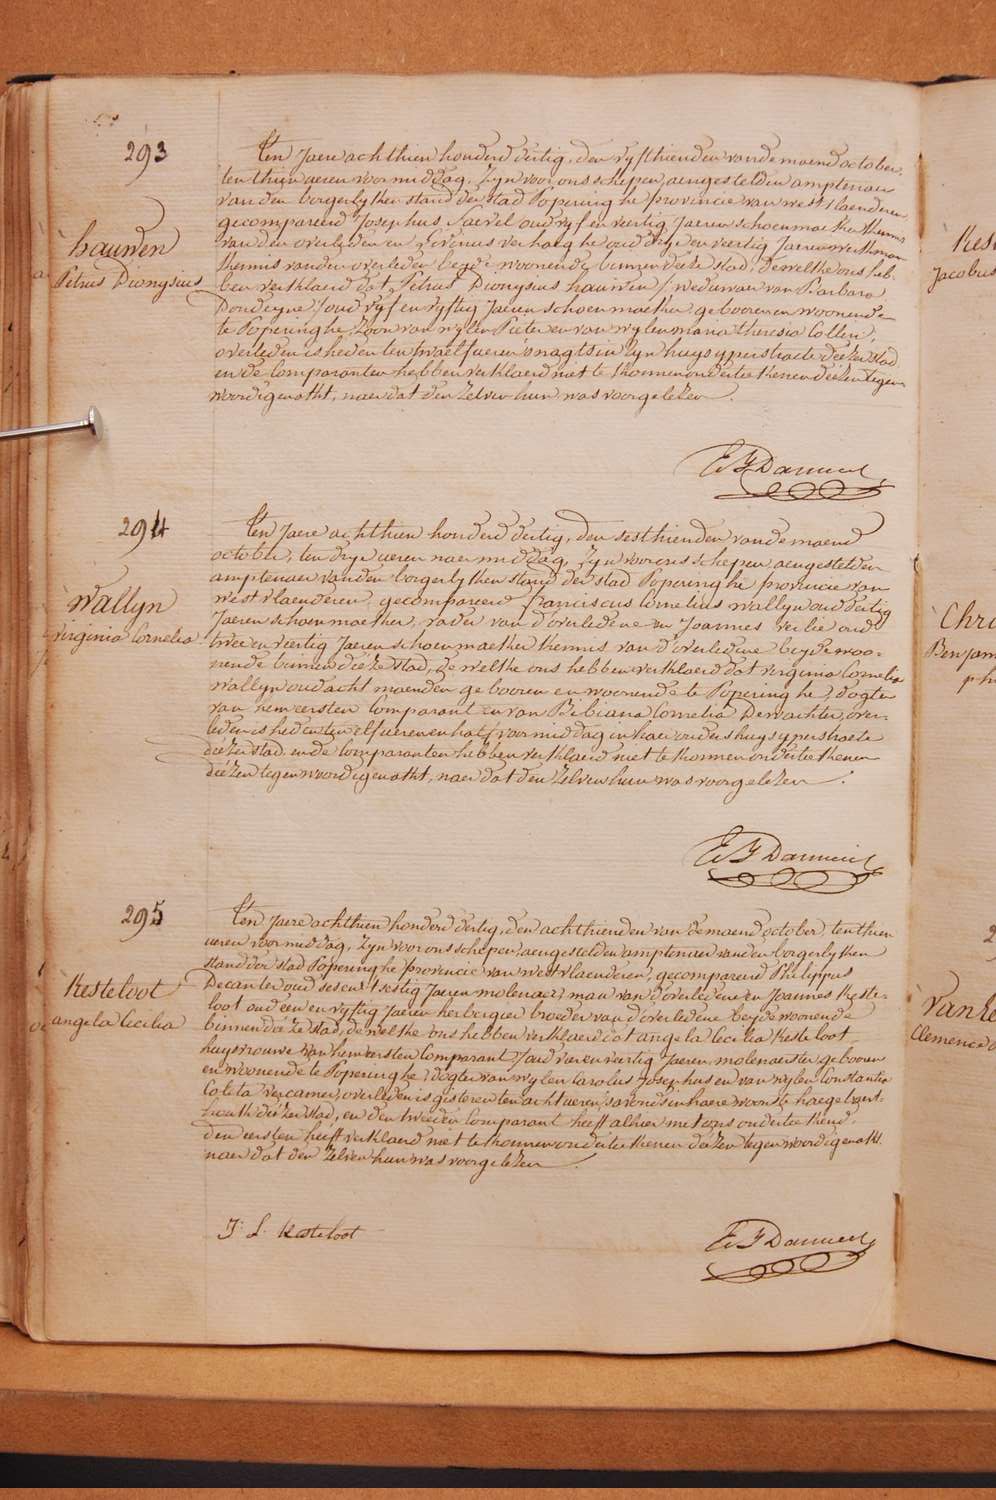 293
hauwen
Petrus Dionysius
Ten Jaere achthien honderd dertig, den vyfthienden van de maend october,
ten thien ueren voormiddag, Zyn voor ons schepen, aengestelden amptenaer
van den borgerlyken stand der stad Poperinghe provincie van west vlaenderen
gecompareerd Josephus oud vyf en veertig Jaeren schoenmaeker kennis
van den overleden en Livinus verhaeghe oud dry en veertig Jaeren werkman
kennis van den overleden beyde woonende binnen deéze stad, dewelke ons heb-
ben verklaerd dat Petrus Dionysius hauwen / weduwaer van Barbara
Dondeyne / oud vyf en vyftig Jaeren schoenmaeker gebooren en woonende
te Poperinghe, Zoon van wylen Pieter en van wylen maria theresia Collen,
overleden is heden ten twaelf ueren 's nagts in Zyn huys yperstraete deézer stad
en de Comparanten hebben verklaerd niet te konnen onderteekenen deézen tegen-
woordigen akt, naer dat den Zelven hun was voorgelezen.
E F Dannieul
294
Wallyn
Virginia Cornelia
Ten Jaere achthien honderd dertig, den sesthienden van de maend
october, ten dry ueren naermiddag, Zyn voor ons schepen aengestelden
amptenaer van den borgerlyken stand der stad Poperinghe provincie van
West vlaenderen, gecompareerd franciscus Cornelius wallyn oud dertig
Jaeren schoenmaeker, vader van d'overledene en Joannes verlie oud
twee en veertig Jaeren schoenmaeker kennis van d'overledene beyde woo-
nende binnen deéze stad, de welke ons hebben verklaerd dat virginia Cornelia
wallyn oud acht maenden gebooren en woonende te Poperinghe, dogter
van hem eersten Comparant en van Bibiana Cornelia Dewachter, over-
leden is heden ten elf ueren en half voormiddag in haer ouders huys yperstraete
deézer stad en de Comparanten hebben verklaerd niet te konnen onderteekenen
deézen tegenwoordigen akt, naer dat den Zelven hun was voorgelezen.
E F Dannieul
295
Kesteloot
angela Cecilia
Ten Jaere achthien honderd dertig, den achthienden van de maend october, ten thien
ueren voormiddag, Zyn voor ons schepen, aengestelden amptenaer van den borgerlyken
stand der stad Poperinghe provincie van west vlaenderen, gecompareerd Philippus
Decanter oud ses en sestig Jaeren molenaer, man van d'overledene en Joannes Keste-
loot oud een en vyftig Jaeren herbergier broeder van d'overledene beyde woonende
binnen deéze stad, de welke ons hebben verklaerd dat angela Cecilia Kesteloot
huysvrouwe van hem eersten Comparant / oud vier en veertig Jaeren, molenaerster gebooren
en woonende te Poperinghe, dogter van wylen Carolus Josephus en van wylen Constantia
Coleta vercamer, overleden is gisteren ten acht ueren 's avonds in haere woonste haegebaert-
houk deézer stad, en den tweeden Comparant heeft alhier met ons onderteekend,
den eersten heeft verklaerd niet te konnen onderteekenen deézen tegenwoordigen akt
naer dat den Zelven hun was voorgelezen.
J: L. Kesteloot
E F Dannieul
Kest
Jacobus
Chri
Benjam
ph
2
Van
Clemence